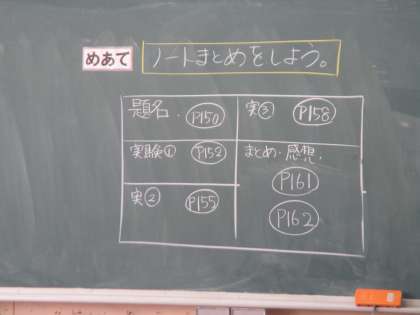 めあて ノートまとめをしよう。
題名. P150
実験① P152
実② P155
実③ P158
まとめ・感想.
P161
P162